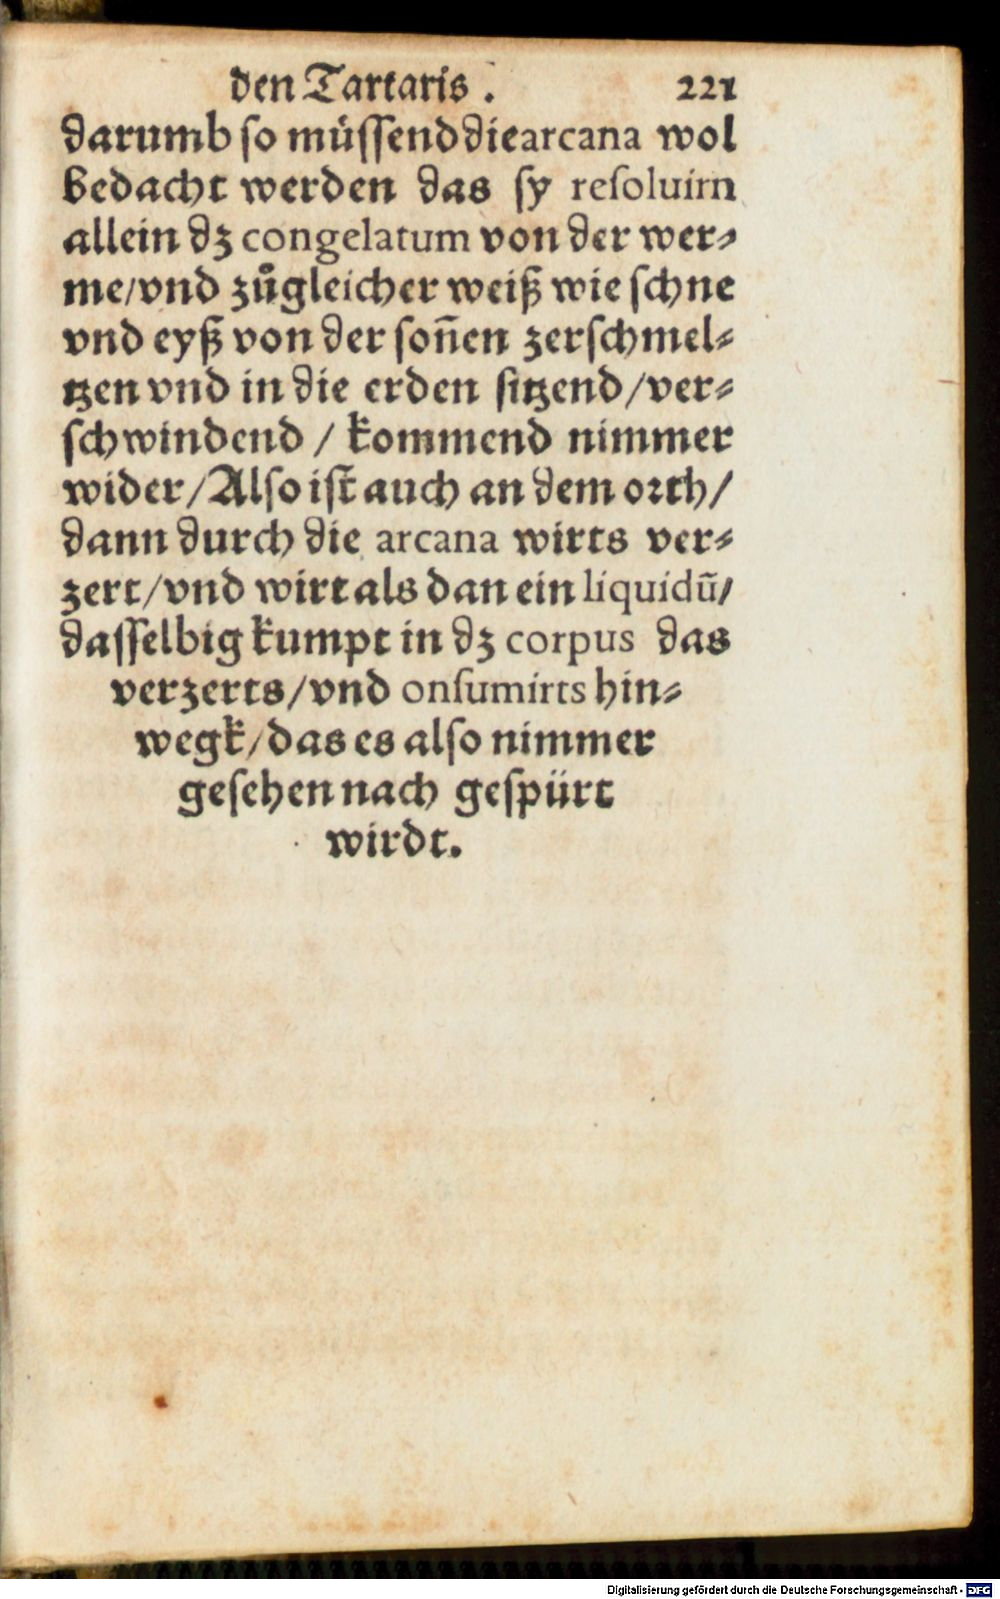 den Tartaris. 221
darumb so müssend die arcana wol
bedacht werden das sy resoluirn
allein dz congelatum von der wer⸗
me/vnd zůgleicher weiß wie schne
vnd eyß von der soñen zerschmel⸗
tzen vnd in die erden sitzend/ver⸗
schwindend / kommend nimmer
wider/Also ist auch an dem orth/
dann durch die arcana wirts ver⸗
zert/vnd wirt als dan ein liquidū/
dasselbig kumpt in dz corpus das
verzerts/vnd onsumirts hin⸗
wegk/das es also nimmer
gesehen nach gespürt
wirdt.
Digitalisierung gefördert durch die Deutsche Forschungsgemeinschaft - DFG